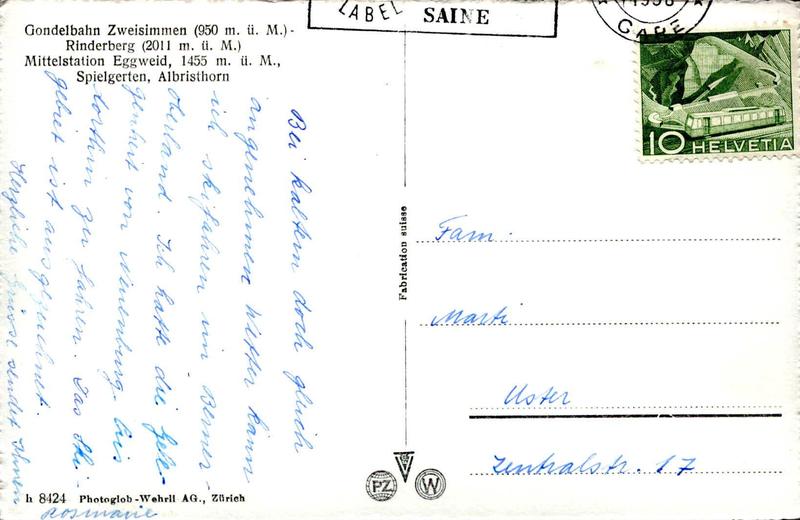 Gondelbahn Zweisimmen (950 m. ü. M.)-
Rinderberg (2011 m. ü. M.)
Mittelstation Eggweid, 1455 m. ü. M.,
Spielgerten, Albristhorn
Bei kaltem doch gleich
angenehmen Wetter kann
ich skifahren im Berner-
oberland. Ich hatte die Gele-
genheit von Neuenburg bis
dorthin zu fahren. Das Ski-
gebiet ist ausgezeichnet.
Herzliche Grüsse sendet Ihnen
Rosmarie
h 8424 Photoglob-Wehrli AG., Zürich
Fabrication suisse
PZ
W
LABEL
SAINE
GARE
10 HELVETIA
Fam.
Marti
Uster
Zentralstr. 17